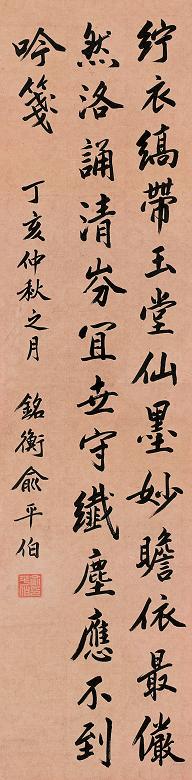 紵衣縞帶玉堂仙墨妙瞻依最儼
然洛誦清芬宜世守纖塵應不到
吟箋
丁亥仲秋之月 銘衡俞平伯